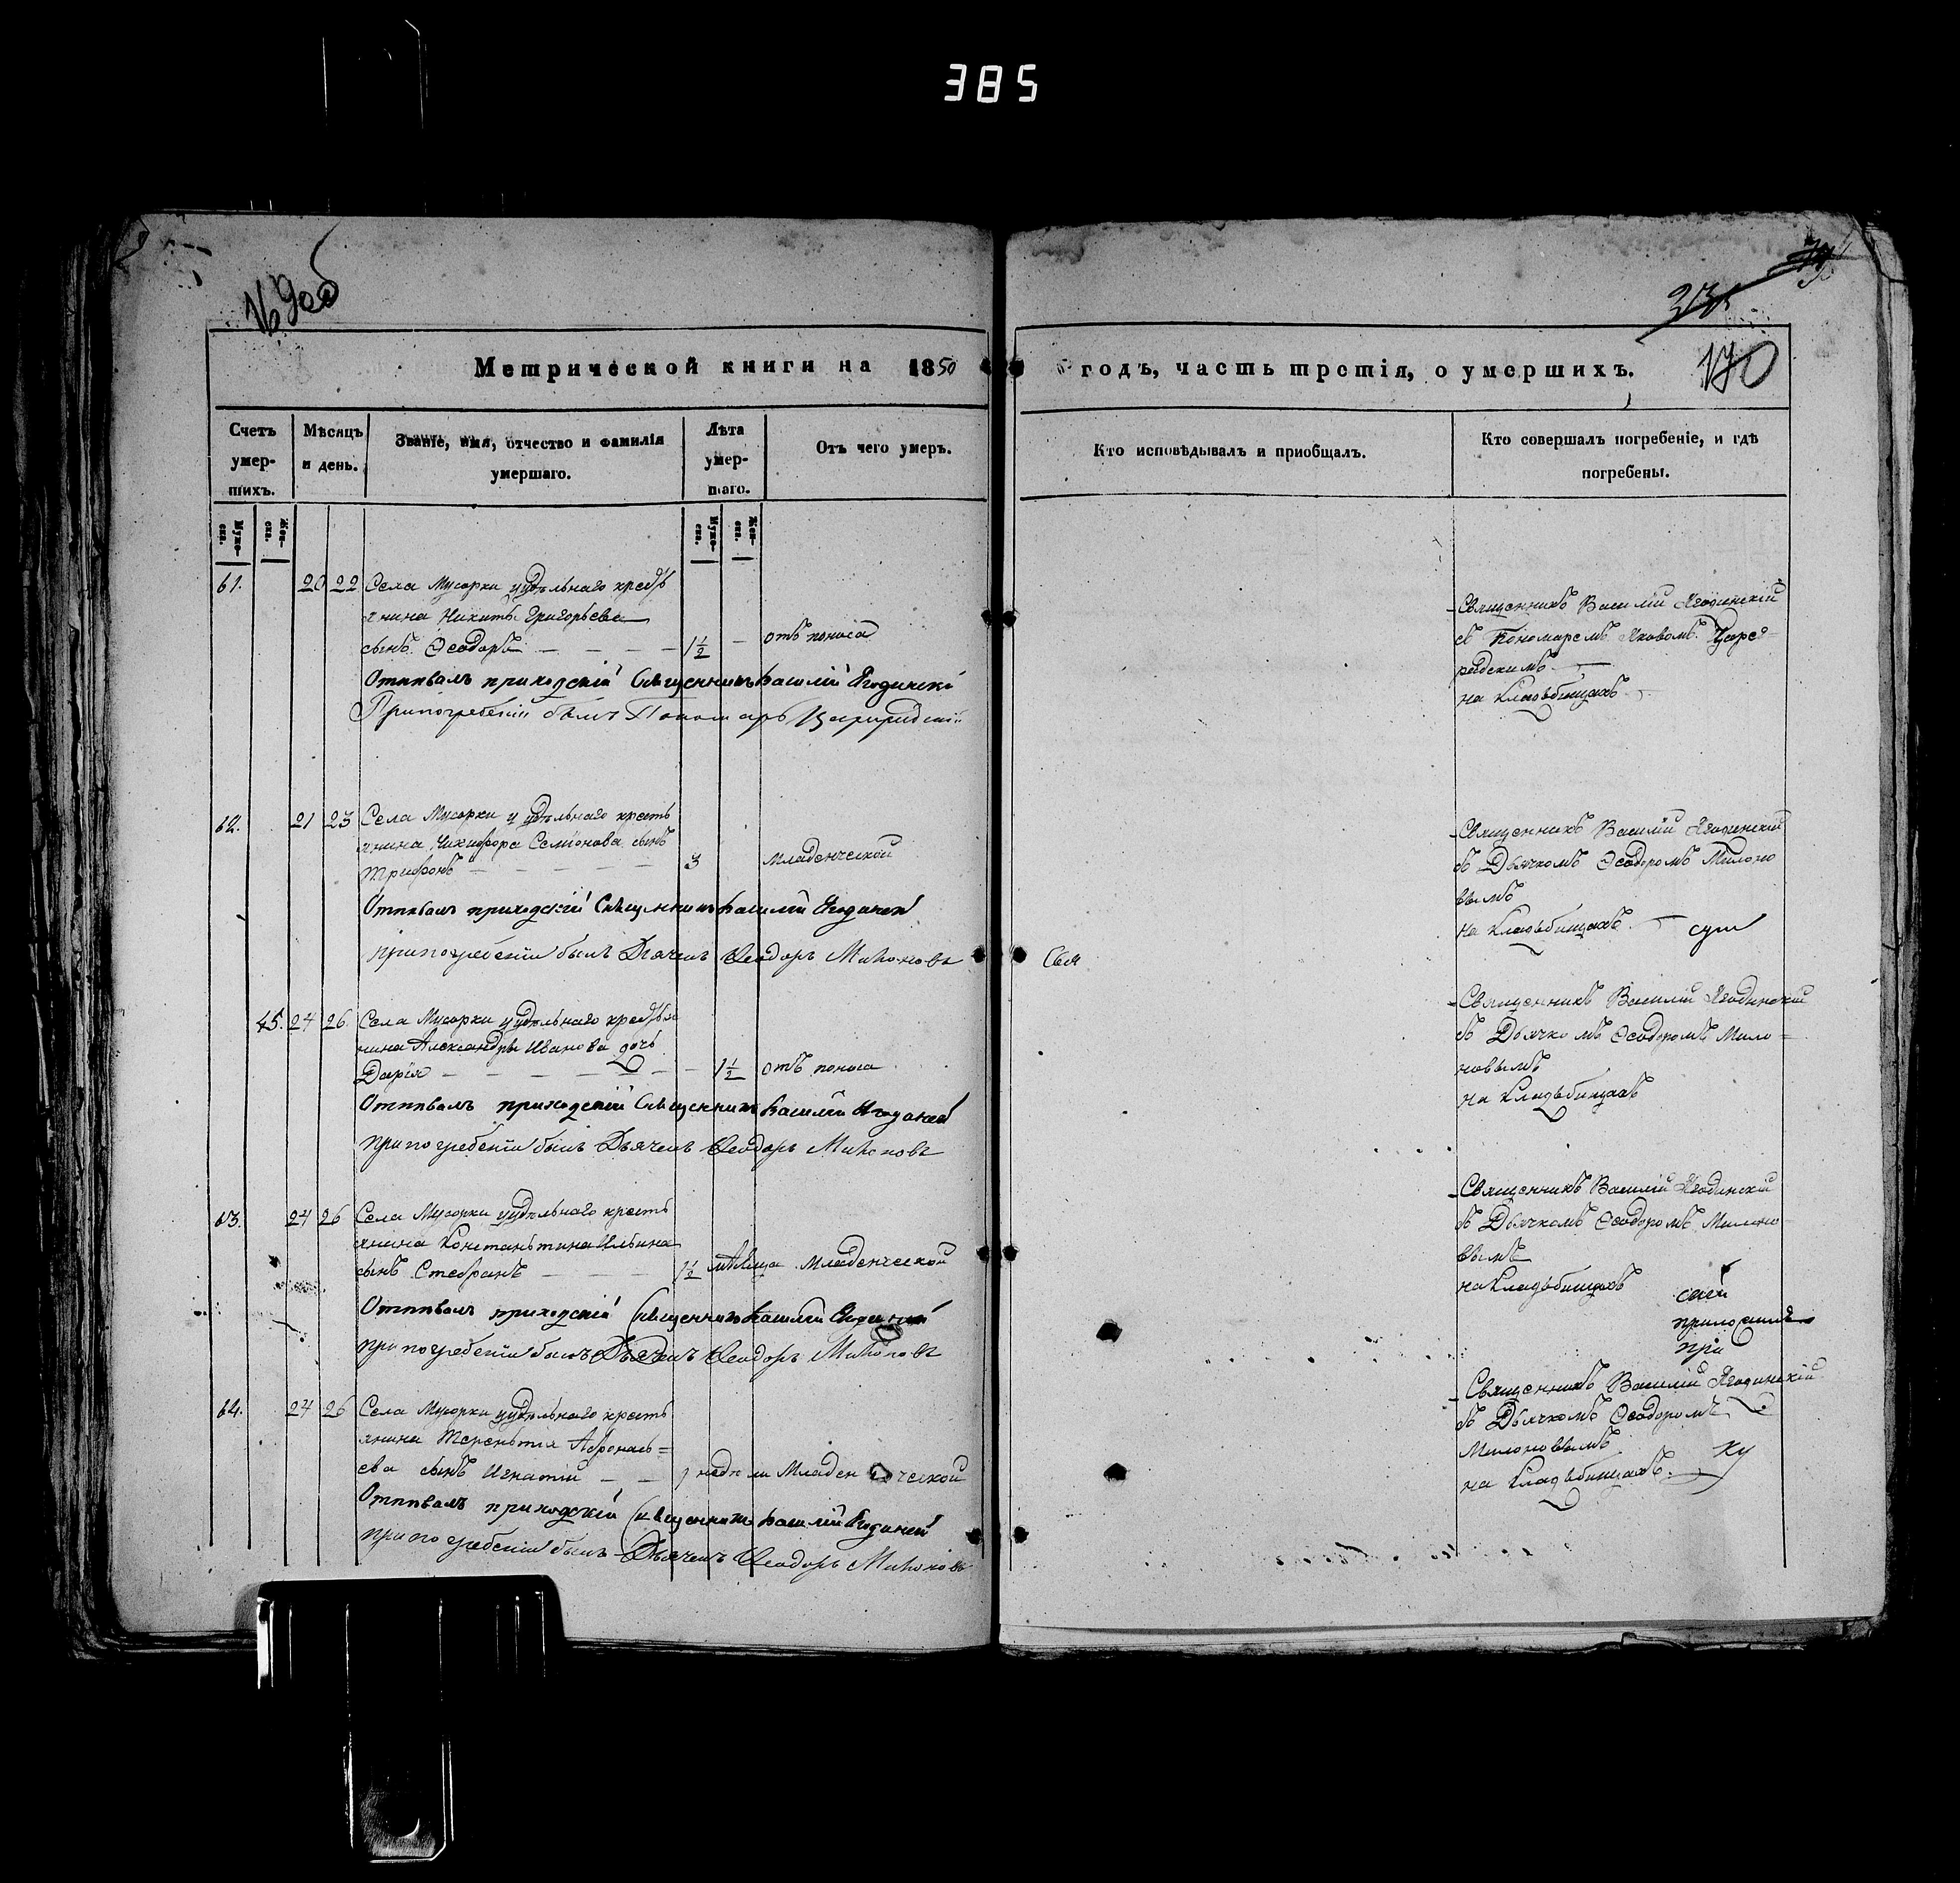 385
169 об
170
Метрической книги на 1850 годъ, часть третія, о умершихъ.
Счетъ умер-шихъ.
Мѣсяцъ и день.
Званіе, имя, отчество и фамилія умершаго.
Лѣта умер-шаго.
Отъ чего умеръ.
Кто исповѣдывалъ и приобщалъ.
Кто совершалъ погребеніе, и гдѣ погребены.
Муже-ска.
Жен-ска.
Муже-ска.
Жен-ска.
61. 20 22 Села Мусорки удѣльнаго кресть
янина Никиты Григорьева
сынъ Ѳеодоръ — — — — 1½ — отъ поноса
Отпѣвалъ приходскій Священникъ Василій Ягодинскій
При погребеніи былъ Пономарь Цареградскій
Священникъ Василій Ягодинскій
съ Пономаремъ Яковомъ Царе=
градскимъ —
на кладьбищахъ
62. 21 23 Села Мусорки удѣльнаго кресть
янина Никифора Семіонова сынъ
Трифонъ — — — — 3 младенческой
Отпѣвалъ приходскій Священникъ Василій Ягодинскій
при погребеніи былъ Дьячекъ Ѳеодоръ Милоновъ
Свя
Священникъ Василій Ягодинскій
съ Дьячкомъ Ѳеодоромъ Милоно
вымъ
на кладьбищахъ
45. 24 26. Села Мусорки удѣльнаго крестья
нина Александра Иванова дочь
Дарія — — — — — — 1½ отъ поноса
Отпѣвалъ приходскій Священникъ Василій Ягодинскій
при погребеніи былъ Дьячекъ Ѳеодоръ Милоновъ
Священникъ Василій Ягодинскій
съ Дьячкомъ Ѳеодоромъ Мило=
новымъ
на кладьбищахъ
63. 24 26 Села Мусорки удѣльнаго кресть
янина Констаньтина Ильина
сынъ Стефанъ — — — 1½ мѣсяца младенческой
Отпѣвалъ приходскій Священникъ Василій Ягодинскій
при погребеніи былъ Дьячекъ Ѳеодоръ Милоновъ
Священникъ Василій Ягодинскій
съ Дьячкомъ Ѳеодоромъ Милоно
вымъ
на кладьбищахъ
при
64. 24 26 Села Мусорки удѣльнаго кресть
янина Тереньтія Афонась=
ева сынъ Игнатій — — недѣли Младенческой
Отпѣвалъ приходскій Священникъ Василій Ягодинскій
при погребеніи былъ Дьячекъ Ѳеодоръ Милоновъ
Священникъ Василій Ягодинскій
съ Дьячкомъ Ѳеодоромъ
Милоновымъ
на кладьбищахъ.